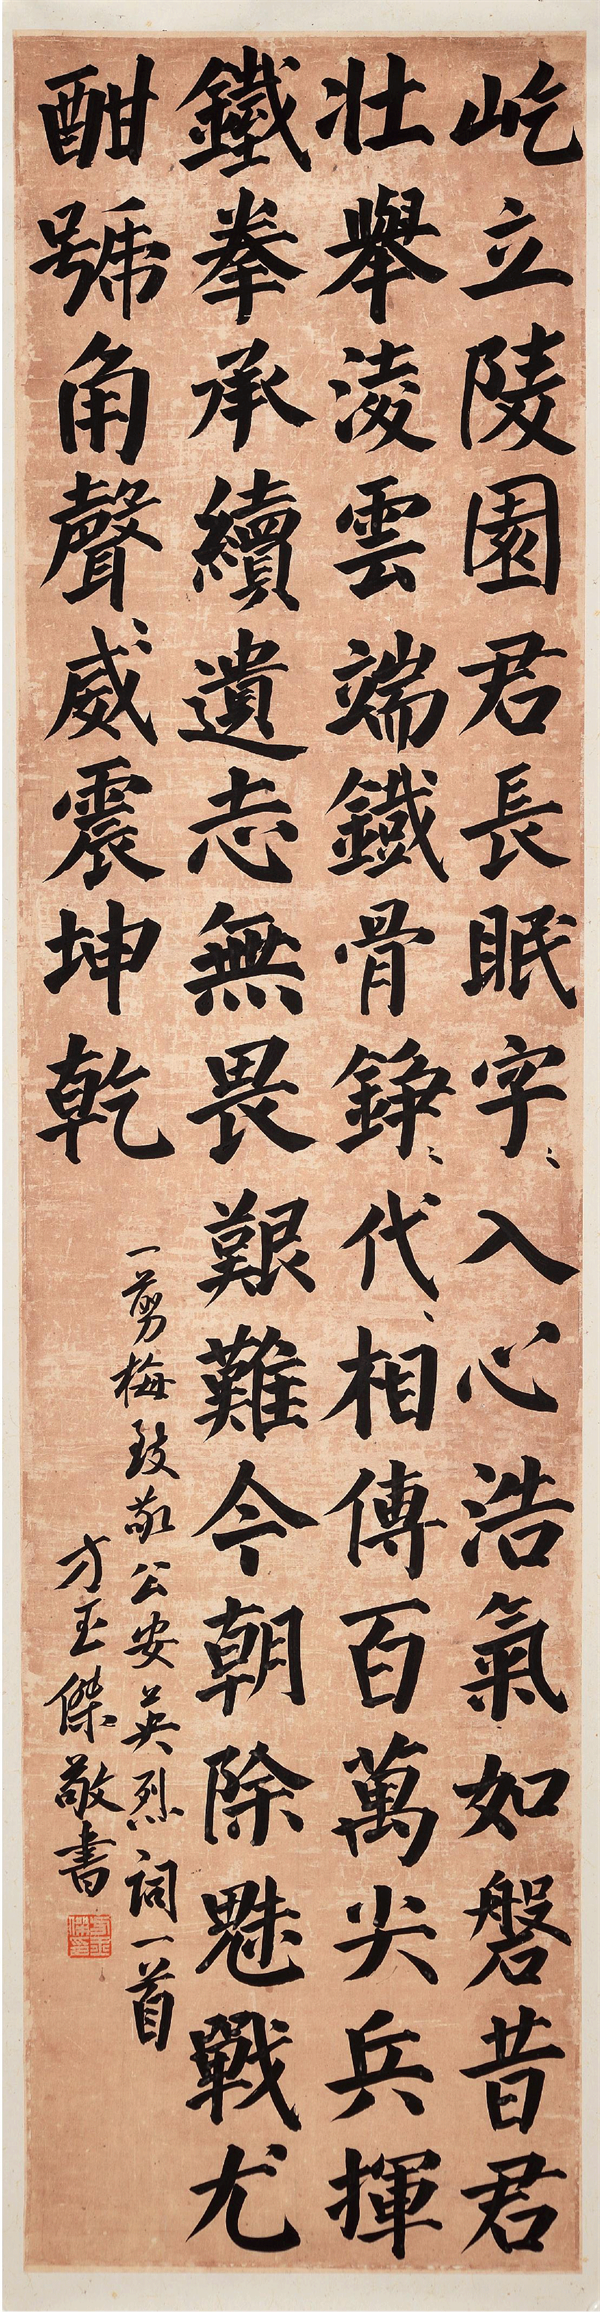 屹立陵園君長眠字〻入心浩氣如磐昔君
壯舉淩雲端鐵骨錚〻代〻相傳百萬尖兵揮
鐵拳承續遺志無畏艱難今朝除魅戰尤
酣號角聲〻威震坤乾
一剪梅致敬公安英烈詞一首
方玉傑敬書